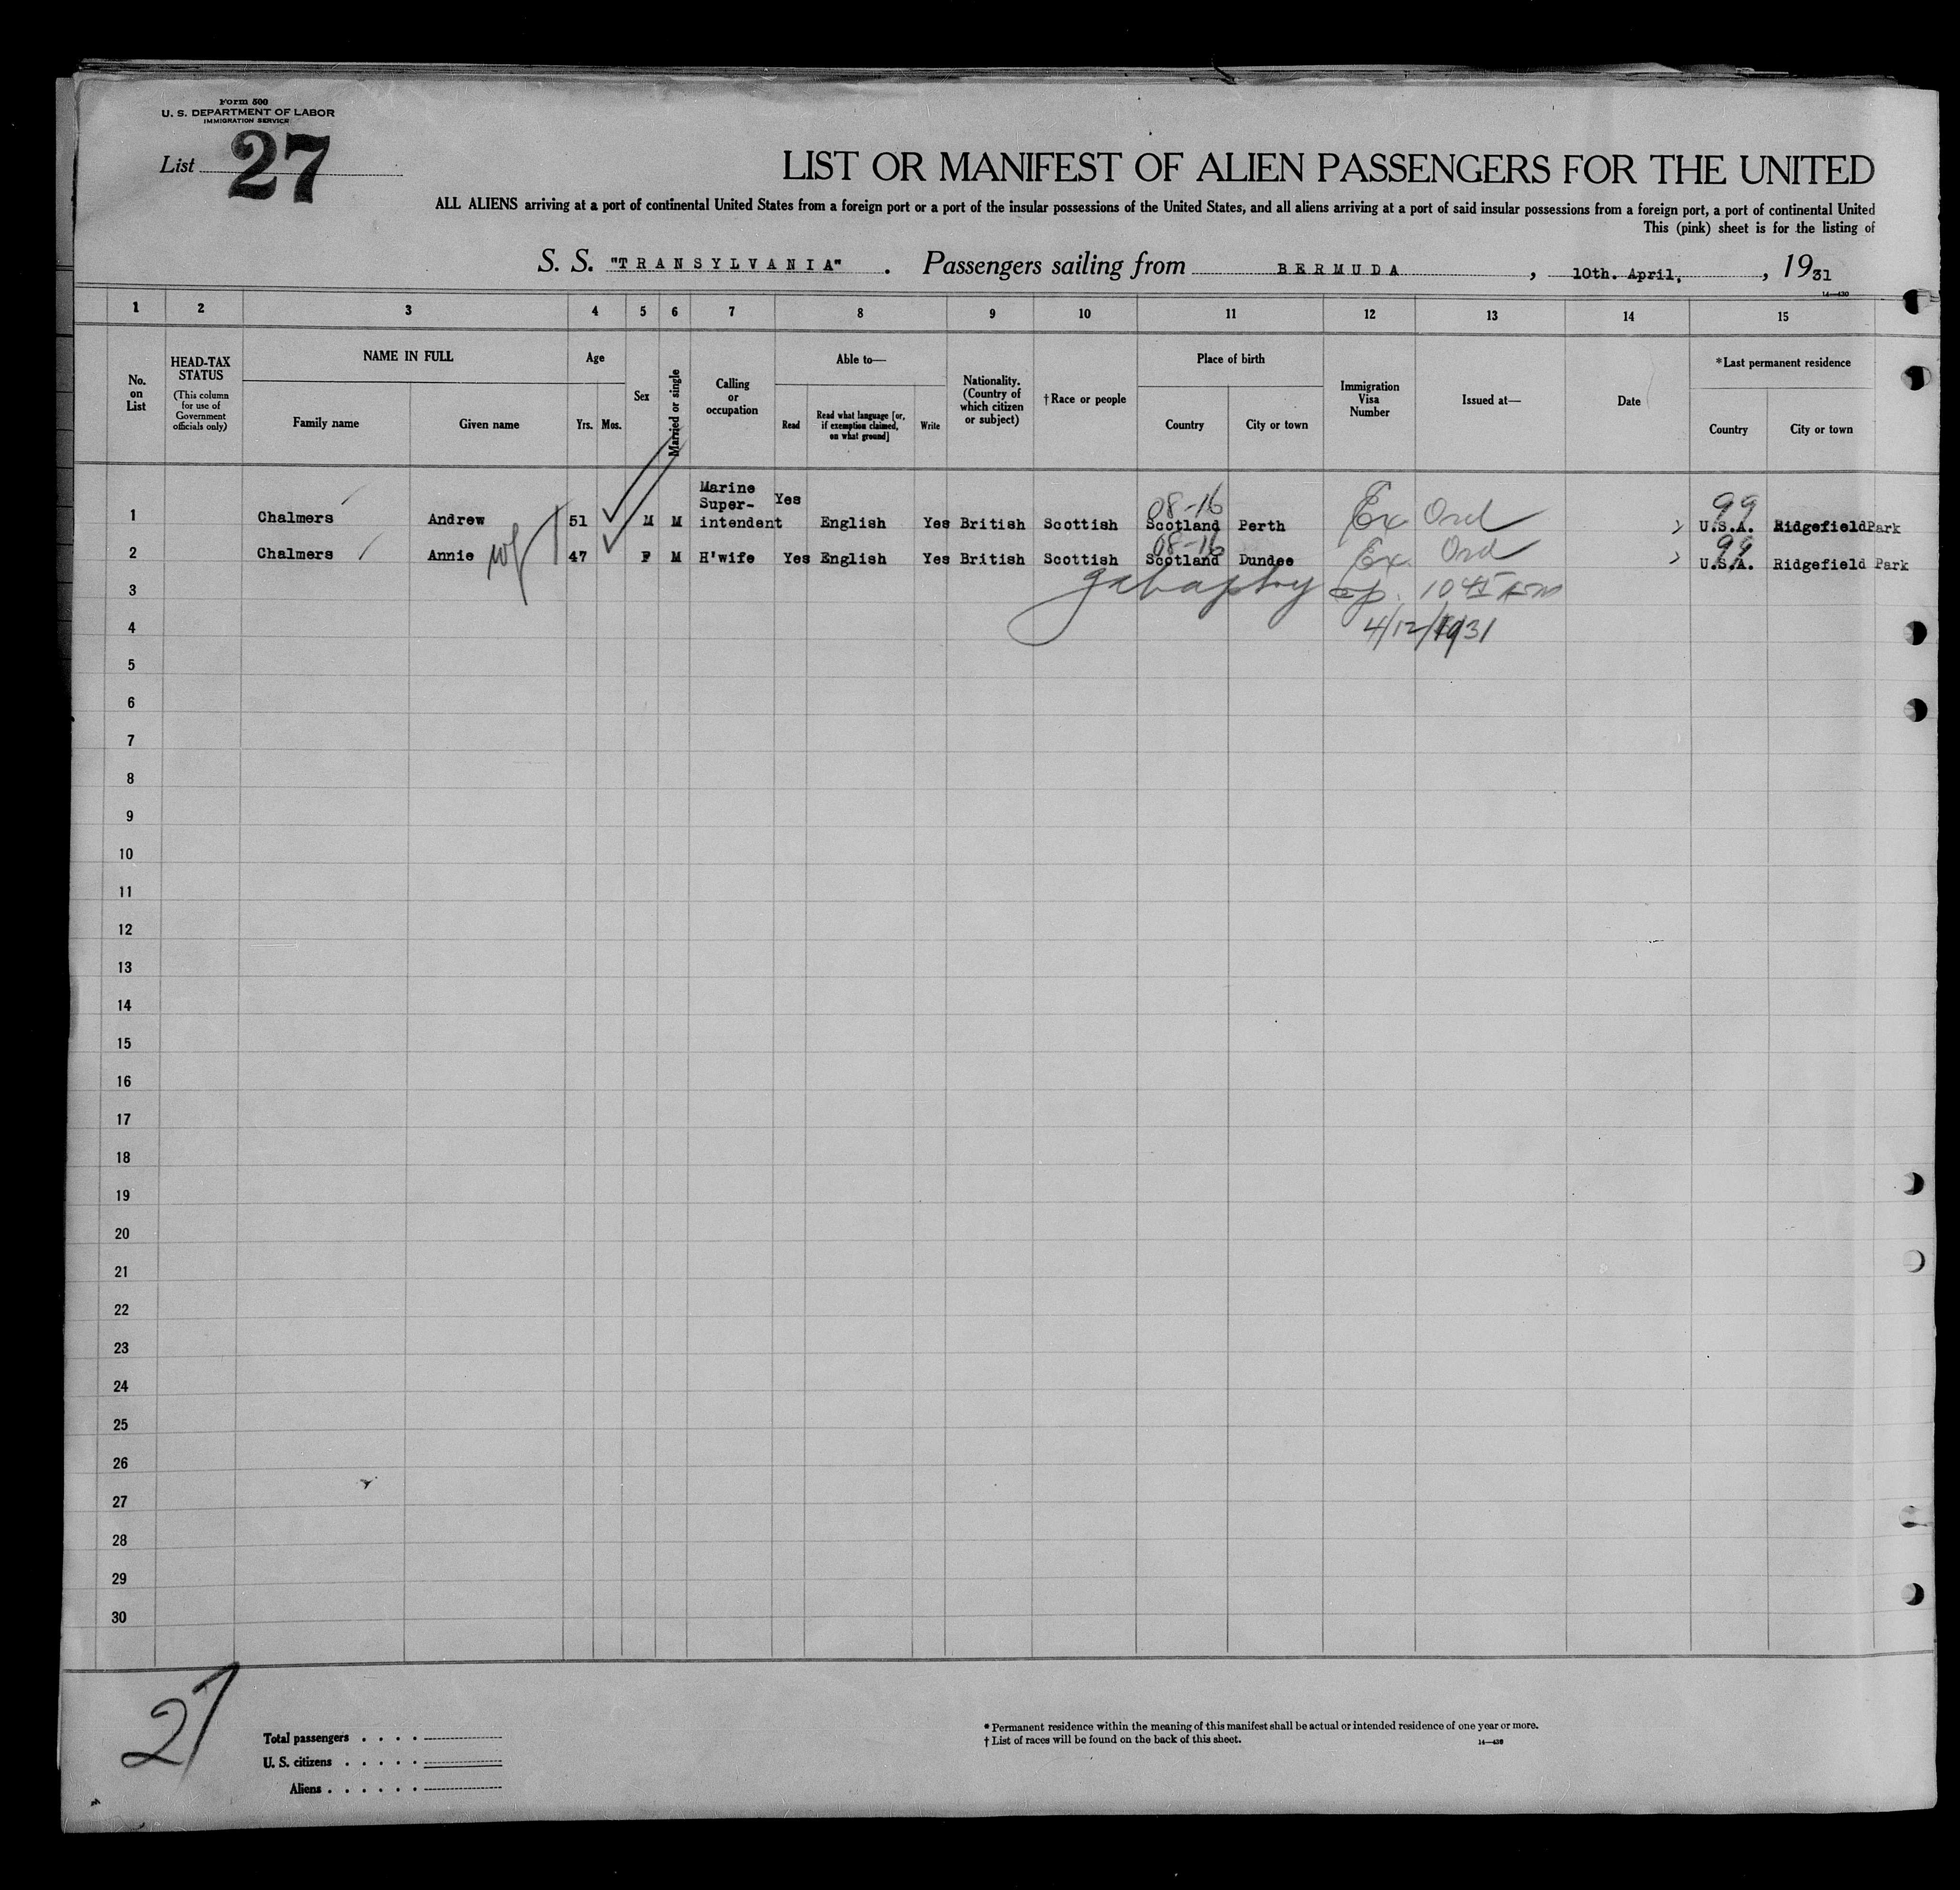 Form 500
U. S. DEPARTMENT OF LABOR
IMMIGRATION SERVICE
List 27
LIST OR MANIFEST OF ALIEN PASSENGERS FOR THE UNITED
ALL ALIENS arriving at a port of continental United States from a foreign port or a port of the insular possessions of the United States, and all aliens arriving at a port of said insular possessions from a foreign port, a port of continental United
This (pink) sheet is for the listing of
S. S. "TRANSYLVANIA" . Passengers sailing from BERMUDA , 10th. April, , 1931
14—430
1 2 3 4 5 6 7 8 9 10 11 12 13 14 15
No. on List
HEAD-TAX STATUS
(This column for use of Government officials only)
NAME IN FULL
Family name Given name
Age
Yrs. Mos.
Sex
Married or single
Calling or occupation
Able to—
Read
Read what language [or, if exemption claimed, on what ground]
Write
Nationality. (Country of which citizen or subject)
† Race or people
Place of birth
Country City or town
Immigration Visa Number
Issued at—
Date
*Last permanent residence
Country City or town
08-16 99
1 Chalmers Andrew 51 M M Marine Super-intendent Yes English Yes British Scottish Scotland Perth Ex Ord U.S.A. Ridgefield Park
08-16 99
2 Chalmers Annie wf 47 F M H'wife Yes English Yes British Scottish Scotland Dundee Ex. Ord U.S.A. Ridgefield Park
3
4 4/12/1931
5
6
7
8
9
10
11
12
13
14
15
16
17
18
19
20
21
22
23
24
25
26
27
28
29
30
27
Total passengers . . . .
U. S. citizens . . . . .
Aliens . . . . . .
* Permanent residence within the meaning of this manifest shall be actual or intended residence of one year or more.
† List of races will be found on the back of this sheet.
14—430